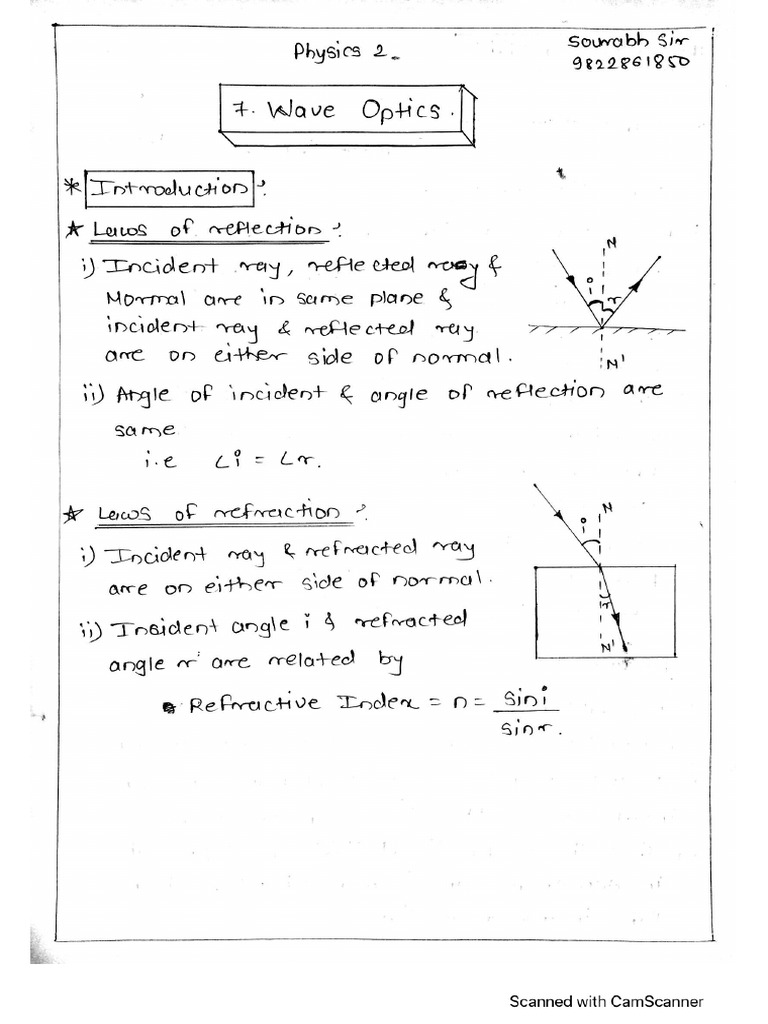 Physics 2.
Sourabh Sir
9822861850
7. Wave Optics.
* Introduction :
* Laws of reflection :
i) Incident ray, reflected ray &
Normal are in same plane &
incident ray & reflected ray
are on either side of normal.
N
i
r
N'
ii) Angle of incident & angle of reflection are
same
i.e ∠i = ∠r.
* Laws of refraction :
i) Incident ray & refracted ray
are on either side of normal.
N
i
r
N'
ii) Insident angle i & refracted
angle r are related by
Refractive Index = n = sini
sinr.
Scanned with CamScanner